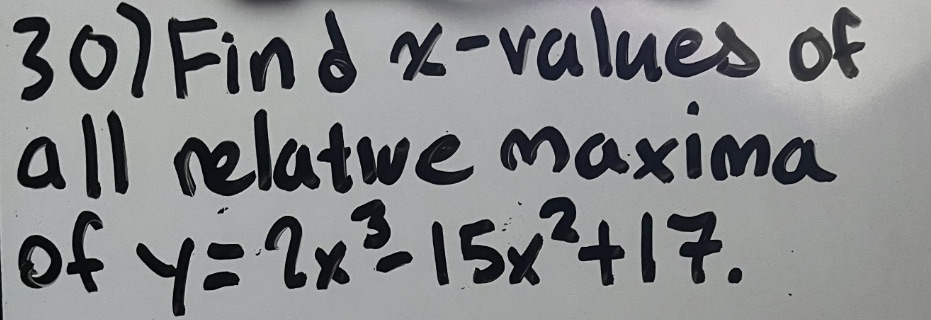 30) Find x-values of
all relative maxima
of y=2x³-15x²+17.